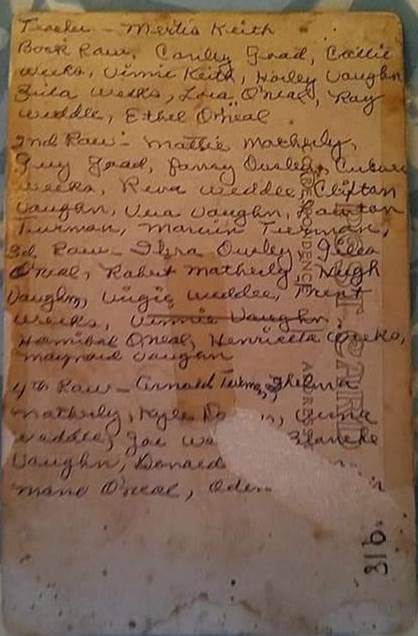 Teacher - Mertis Keith
Back Raw. Conley Goad, Callie
Weeks, Vinnie Keith, Harley Vaughn
Zula Weeks, Lora O'Neal, Ray
Weddle, Ethel O'Neal
2nd Raw - Mattie Matherly,
Guy Goad, Fanny Ousley,
Weeks, Reva Weddle, Clifton
Vaughn, Vera Vaughn,
Turman, Marvin Turman,
3d Raw - Ezra Ousley, Giles
O'Neal, Robert Matherly, Hugh
Vaughn, Virgie Weddle, Trent
Weeks, Vinnie Vaughn,
Hannibal O'Neal, Henrietta Weeks,
Maynard Vaughn
4th Raw - Arnold Turman, Thelma
Matherly, Kyle
Weddle, Joe Blanche
Vaughn, Donald
O'Neal, Oden
POST CARD
CORRESPONDENCE
ADDRESS
316